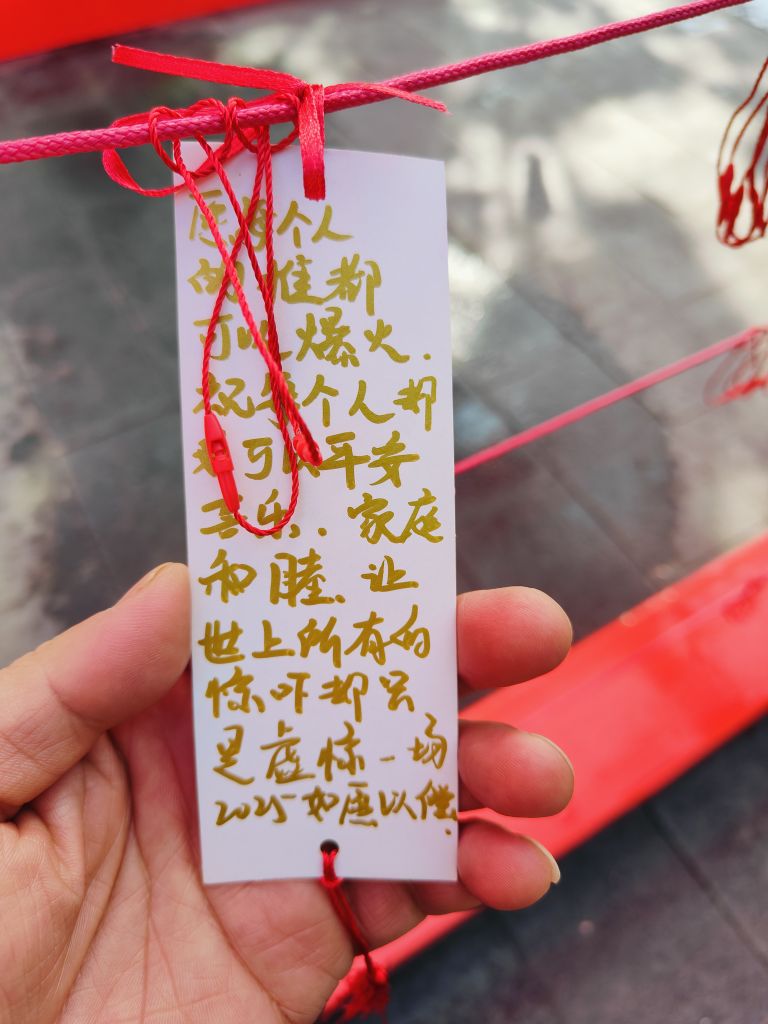 愿每个人
的谁都
可以爆火.
祝每个人都
可以平安
喜乐.家庭
和睦.让
世上所有的
惊吓都只
是虚惊一场
2025如愿以偿.